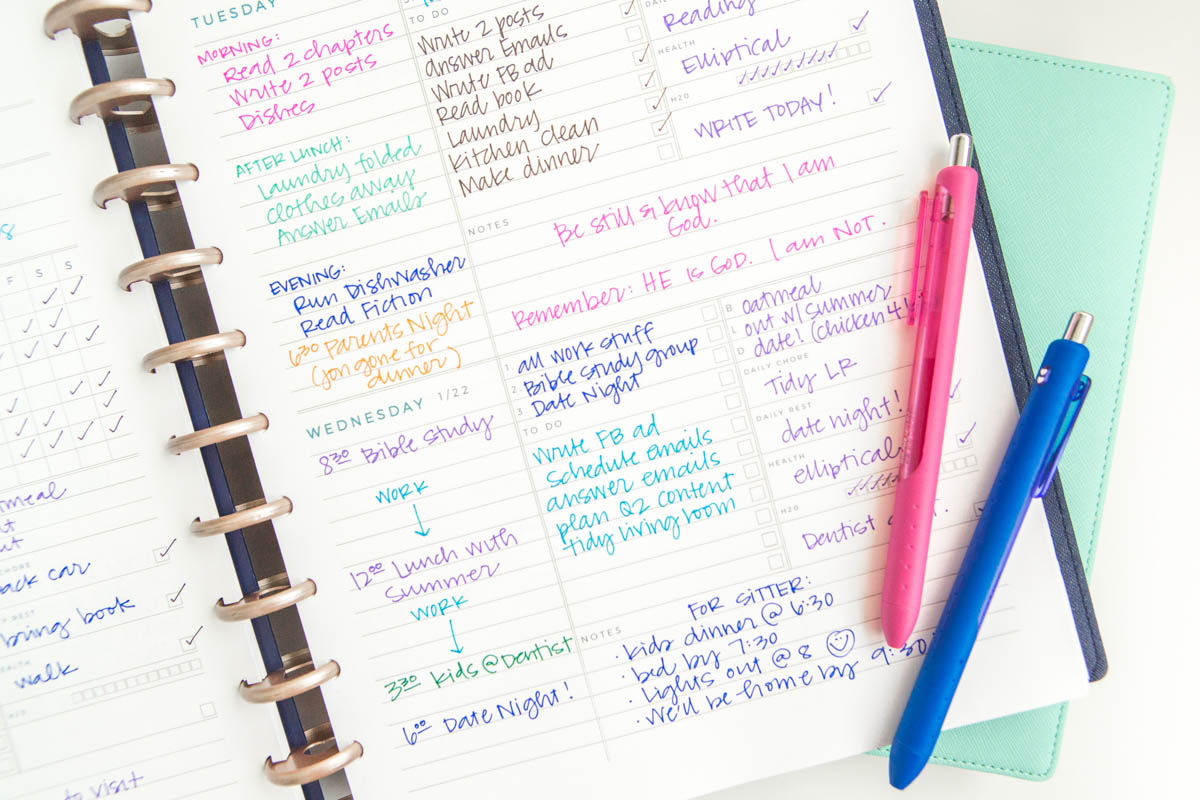 TUESDAY
MORNING:
Read 2 chapters
Write 2 posts
Dishes
AFTER LUNCH:
Laundry folded
clothes away
Answer Emails
EVENING:
Run Dishwasher
Read Fiction
6:30 Parents Night
(Jon gone for
dinner)
TO DO
Write 2 posts
answer Emails
Write FB ad
Read book
Laundry
Kitchen clean
Make dinner
Reading
HEALTH
Elliptical
H2O
WRITE TODAY!
NOTES
Be still & know that I am
God.
Remember: HE is GOD. I am NOT.
WEDNESDAY 1/22
8:30 Bible Study
WORK
12:00 Lunch with
Summer
WORK
3:30 Kids @ Dentist
6:00 Date Night!
1. all work stuff
2. Bible study group
3. Date Night
TO DO
Write FB ad
Schedule emails
answer emails
plan Q2 content
tidy living room
B oatmeal
L out w/ Summer
D date! (chicken 4
DAILY CHORE
Tidy LR
DAILY REST
date night!
HEALTH
elliptical
H2O
Dentist
NOTES
FOR SITTER:
· kids dinner @ 6:30
· bed by 7:30
· Lights out @ 8
· We'll be home by 9:30
F S S
bring book
walk
to visit